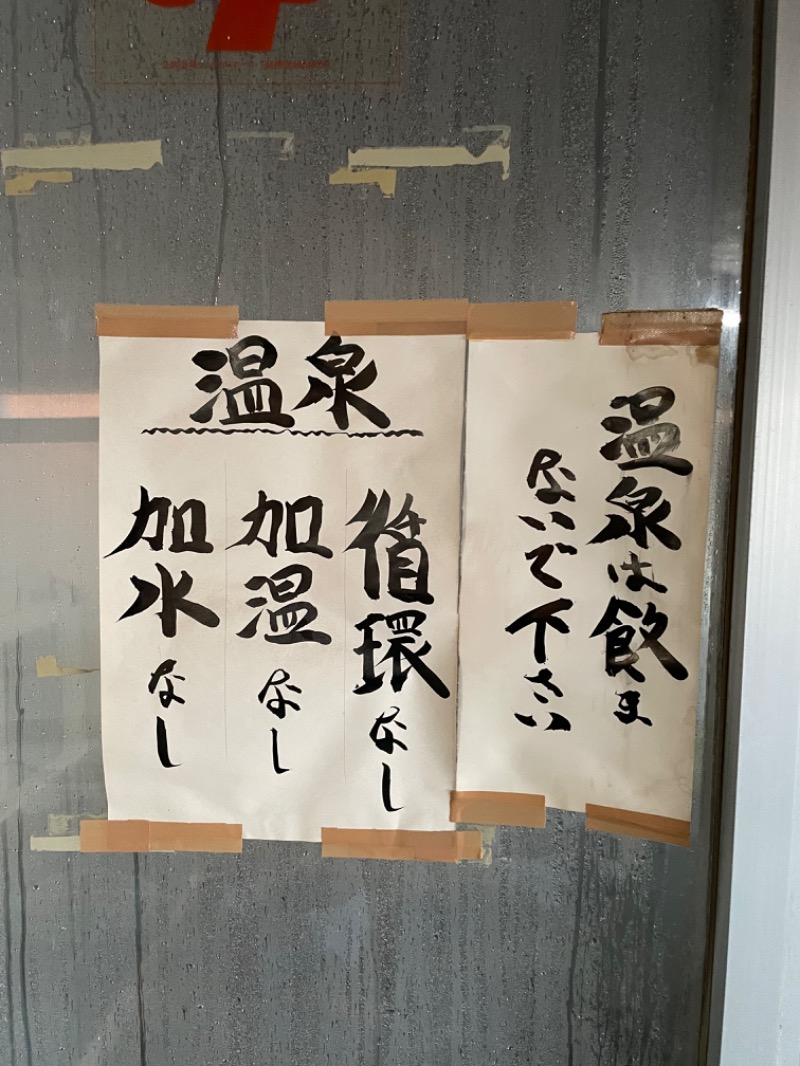 温泉
循環なし
加温なし
加水なし
温泉は飲ま
ないで下さい